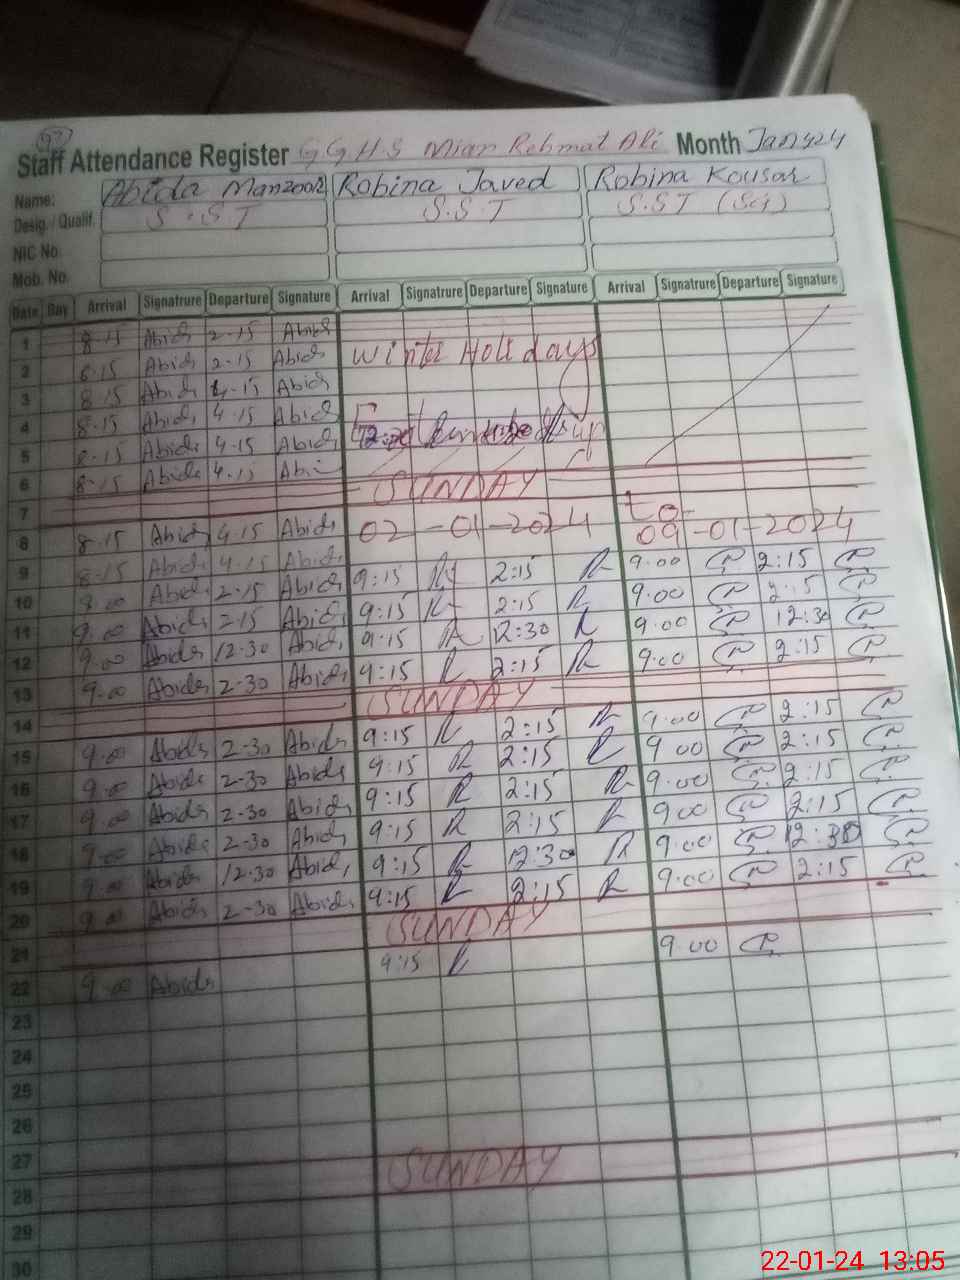 92
Staff Attendance Register GGHS Mian Rehmat Ali Month Jan 24
Name: Abida Manzoor Robina Javed Robina Kousar
Desig. / Qualif. S.S.T S.S.T S.ST (Sci)
NIC No.
Mob. No.
Date Day Arrival Signatrure Departure Signature Arrival Signatrure Departure Signature Arrival Signatrure Departure Signature
1 8.15 Abida 2-15 Abida
2 8.15 Abida 2-15 Abida Winter Holidays
3 8.15 Abida 4-15 Abida
4 8.15 Abida 4.15 Abida
5 8.15 Abida 4-15 Abida
6 8.15 Abida 4.15 Abida
7 SUNDAY
8 8.15 Abida 4.15 Abida 02-01-2024 to 09-01-2024
9 8.15 Abida 4.15 Abida 9:15 R 2:15 R 9.00 2:15
10 9.00 Abida 2.15 Abida 9:15 R 2:15 R 9.00 2:15
11 9.00 Abida 2.15 Abida 9:15 R 12:30 R 9.00 12:30
12 9.00 Abida 12.30 Abida 9:15 R 2:15 R 9.00 2:15
13 9.00 Abida 2-30 Abida
14 SUNDAY
15 9.00 Abida 2-30 Abida 9:15 R 2:15 R 9.00 2:15
16 9.00 Abida 2-30 Abida 9:15 R 2:15 R 9.00 2:15
17 9.00 Abida 2-30 Abida 9:15 R 2:15 R 9.00 2:15
18 9.00 Abida 2-30 Abida 9:15 R 2:15 R 9.00 2:15
19 9.00 Abida 12.30 Abida 9:15 R 12:30 R 9.00 12:30
20 9.00 Abida 2-30 Abida 9:15 R 2:15 R 9.00 2:15
21 SUNDAY
22 9.00 Abida 9:15 R 9.00
23
24
25
26
27
28 SUNDAY
29
30
22-01-24 13:05